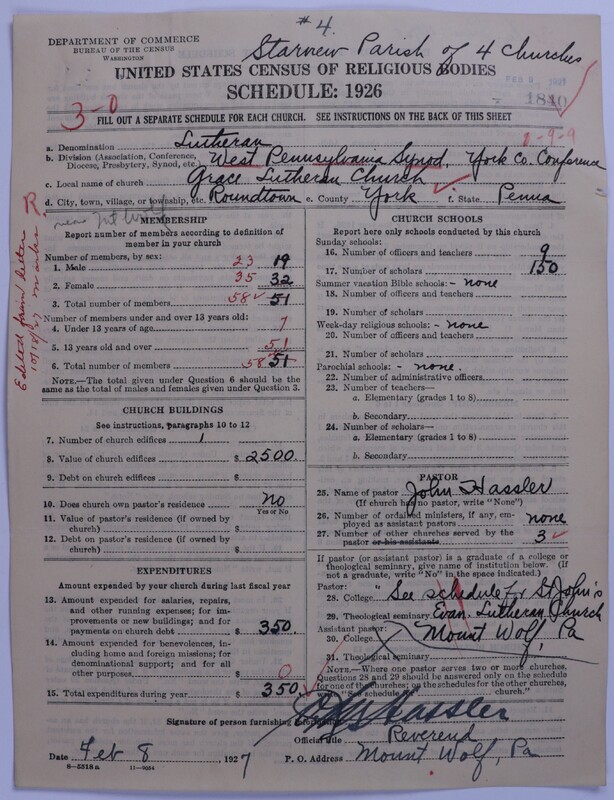 #4.
DEPARTMENT OF COMMERCE
BUREAU OF THE CENSUS
WASHINGTON
Starview Parish of 4 Churches
UNITED STATES CENSUS OF RELIGIOUS BODIES
SCHEDULE: 1926
1810
3-0
FILL OUT A SEPARATE SCHEDULE FOR EACH CHURCH. SEE INSTRUCTIONS ON THE BACK OF THIS SHEET
a. Denomination Lutheran
b. Division (Association, Conference, Diocese, Presbytery, Synod, etc.) West Pennsylvania Synod, York Co. Conference
c. Local name of church Grace Lutheran Church
d. City, town, village, or township, etc. Roundtown e. County York f. State Penna
near Mt Wolf
Edited from letter
10/18/27
MEMBERSHIP
Report number of members according to definition of
member in your church
Number of members, by sex:
1. Male 23 19
2. Female 35 32
3. Total number of members 58 51
Number of members under and over 13 years old:
4. Under 13 years of age 7
5. 13 years old and over 51
6. Total number of members 58 51
NOTE.—The total given under Question 6 should be the
same as the total of males and females given under Question 3.
CHURCH BUILDINGS
See instructions, paragraphs 10 to 12
7. Number of church edifices 1
8. Value of church edifices $ 2500.
9. Debt on church edifices $
10. Does church own pastor's residence? No
Yes or No
11. Value of pastor's residence (if owned by
church) $
12. Debt on pastor's residence (if owned by
church) $
EXPENDITURES
Amount expended by your church during last fiscal year
13. Amount expended for salaries, repairs,
and other running expenses; for im-
provements or new buildings; and for
payments on church debt $ 350.
14. Amount expended for benevolences, in-
cluding home and foreign missions; for
denominational support; and for all
other purposes $ 0
15. Total expenditures during year $ 350
CHURCH SCHOOLS
Report here only schools conducted by this church
Sunday schools:
16. Number of officers and teachers 9
17. Number of scholars 150
Summer vacation Bible schools: - none
18. Number of officers and teachers
19. Number of scholars
Week-day religious schools: - none
20. Number of officers and teachers
21. Number of scholars
Parochial schools: - none.
22. Number of administrative officers
23. Number of teachers—
a. Elementary (grades 1 to 8)
b. Secondary
24. Number of scholars—
a. Elementary (grades 1 to 8)
b. Secondary
PASTOR
25. Name of pastor John Hassler
(If church has no pastor, write "None")
26. Number of ordained ministers, if any, em-
ployed as assistant pastors none
27. Number of other churches served by the
pastor or his assistants 3
If pastor (or assistant pastor) is a graduate of a college or
theological seminary, give name of institution below. (If
not a graduate, write "No" in the space indicated.)
Pastor:
28. College See schedule for St John's
29. Theological seminary Evan. Lutheran Church
Assistant pastor:
30. College Mount Wolf, Pa
31. Theological seminary
NOTE.—Where one pastor serves two or more churches,
Questions 28 and 29 should be answered only on the schedule
for one of the churches; on the schedules for the other churches,
write "See schedule for church."
Signature of person furnishing information Hassler
Official title Reverend
Date Feb 8 1927 P. O. Address Mount Wolf, Pa
8—5318 a 11—9054